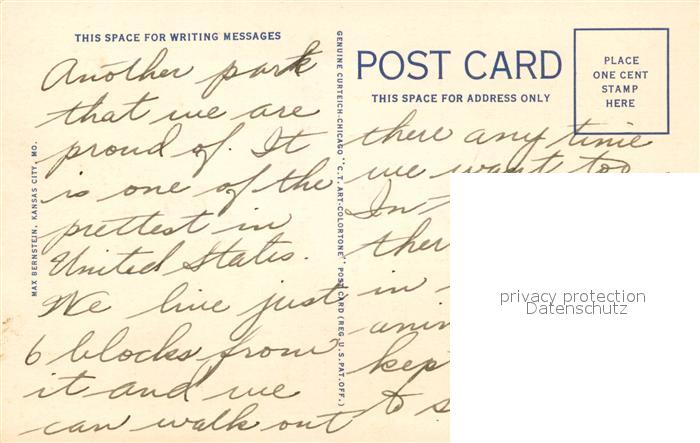 THIS SPACE FOR WRITING MESSAGES
Another park
that we are
proud of. It
is one of the
prettest in
United States.
We live just
6 blocks from
it and we
can walk out
MAX BERNSTEIN, KANSAS CITY, MO.
GENUINE CURTEICH-CHICAGO "C.T. ART-COLORTONE" POST CARD (REG. U.S. PAT. OFF.)
POST CARD
THIS SPACE FOR ADDRESS ONLY
PLACE
ONE CENT
STAMP
HERE
there any time
we want too
in
kep
to s
privacy protection
Datenschutz